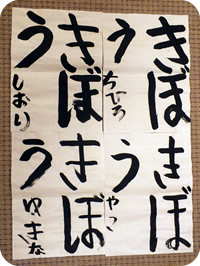 きぼ
う
ちひろ
きぼ
う
しおり
きぼ
う
きぼ
う
ゆきな